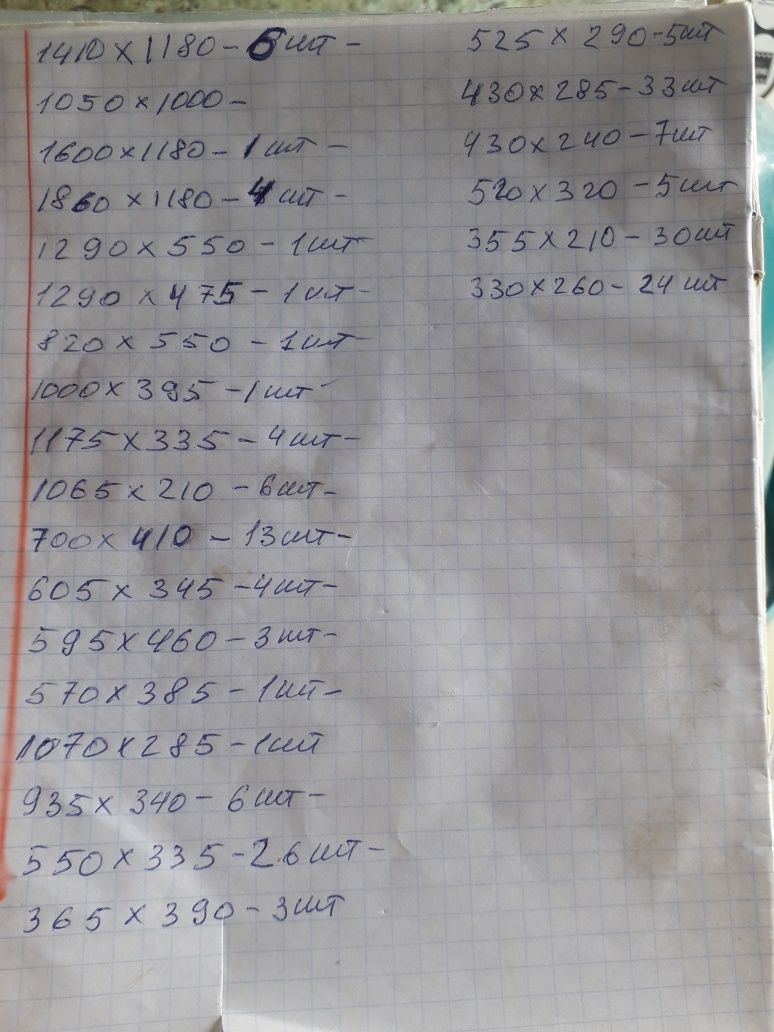 1410 x 1180 - 6 шт -
1050 x 1000 -
1600 x 1180 - 1 шт -
1860 x 1180 - 4 шт -
1290 x 550 - 1 шт
1290 x 475 - 1 шт -
820 x 550 - 1 шт -
1000 x 395 - 1 шт -
1175 x 335 - 4 шт -
1065 x 210 - 6 шт -
700 x 410 - 13 шт -
605 x 345 - 4 шт -
595 x 460 - 3 шт -
570 x 385 - 1 шт -
1070 x 285 - 1 шт
935 x 340 - 6 шт -
550 x 335 - 26 шт -
365 x 390 - 3 шт
525 x 290 - 5 шт
430 x 285 - 33 шт
430 x 240 - 7 шт
520 x 320 - 5 шт
355 x 210 - 30 шт
330 x 260 - 24 шт